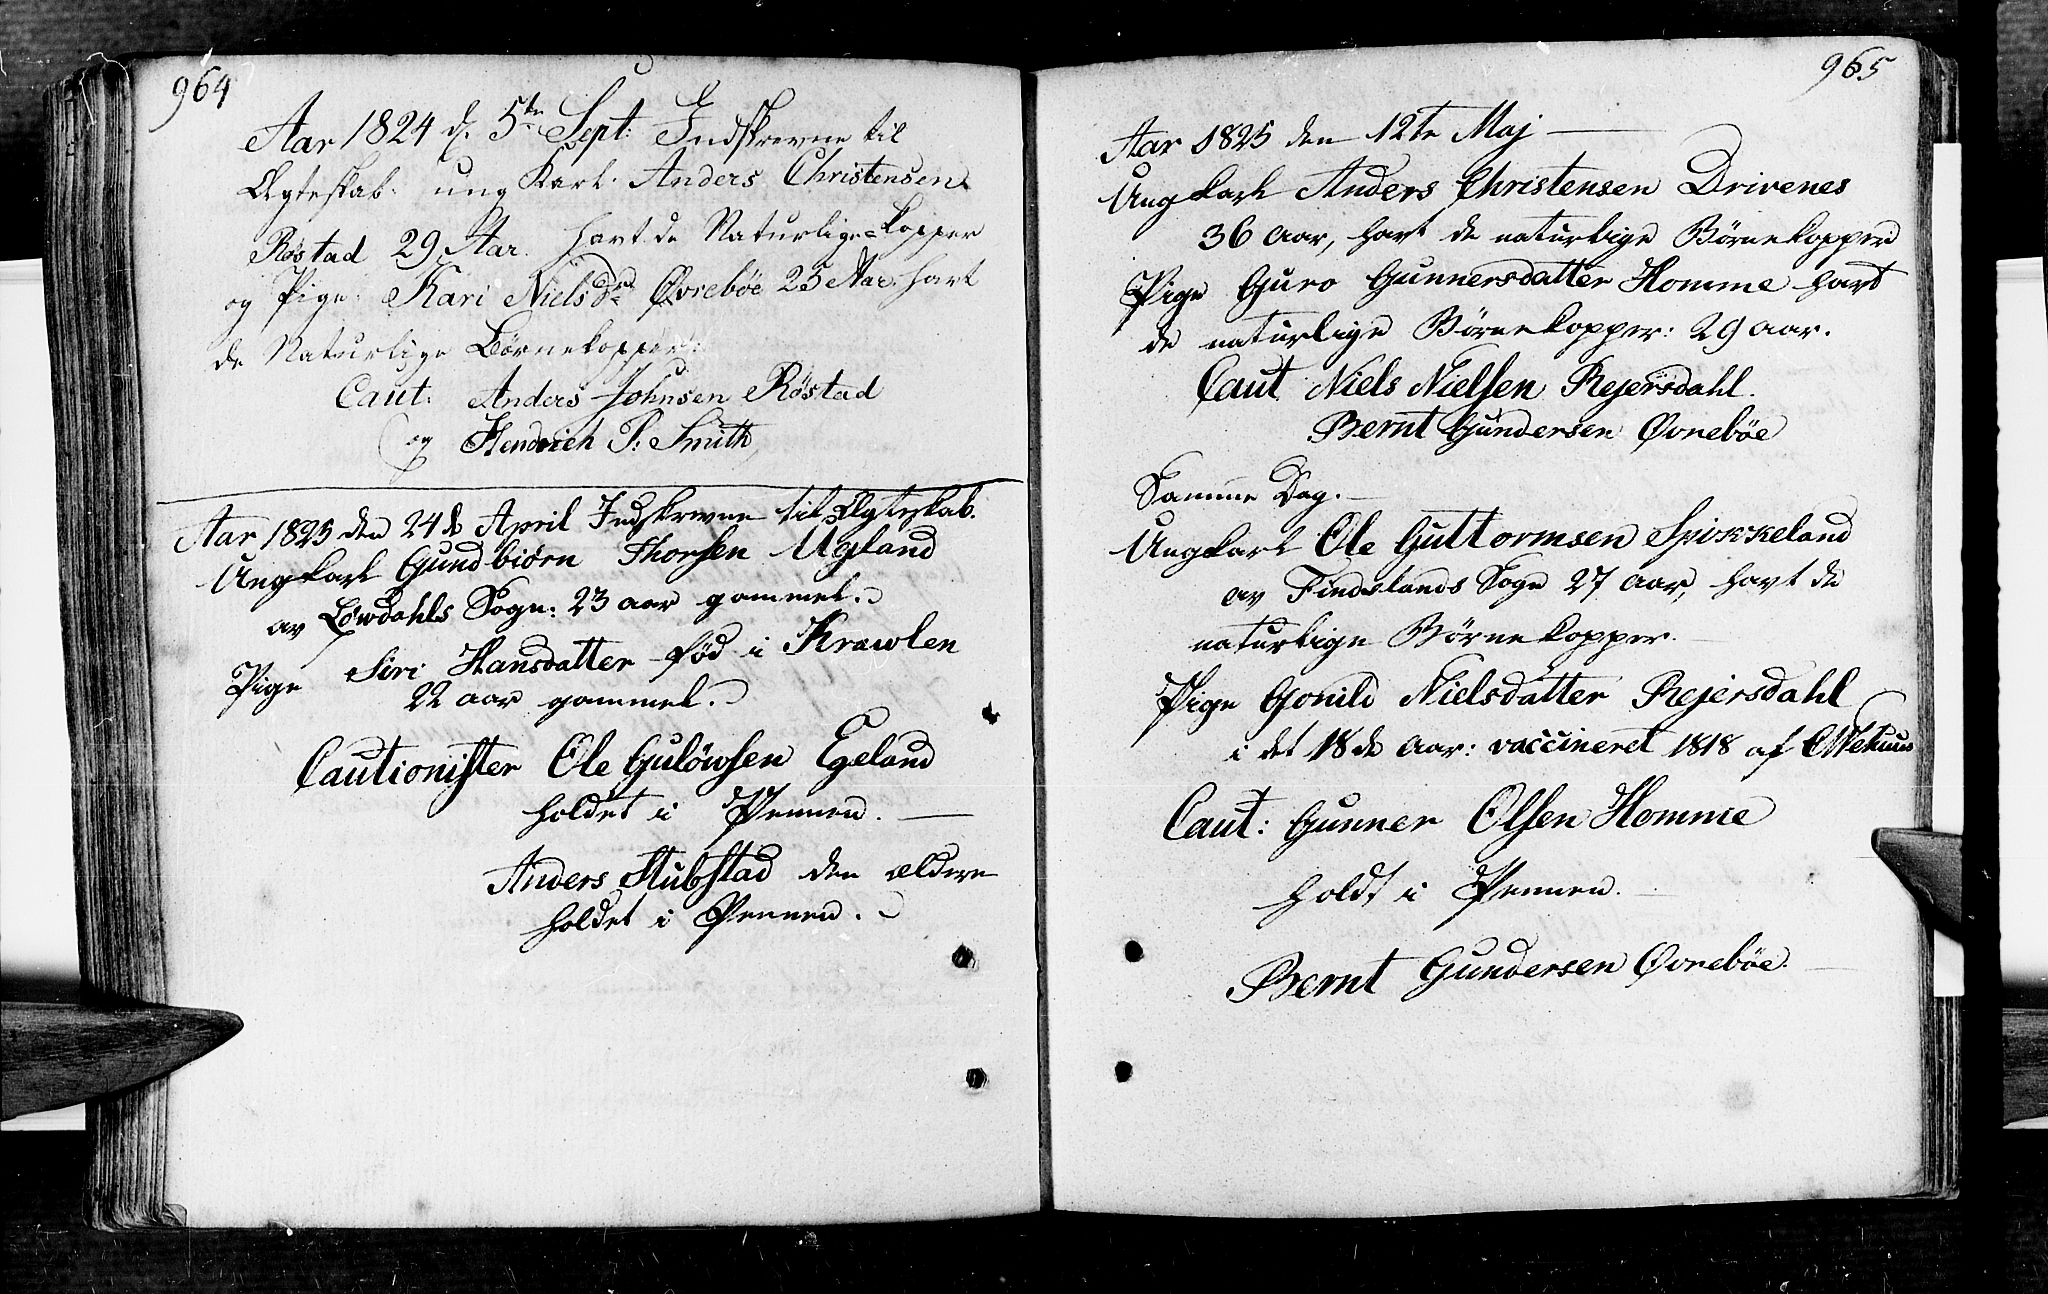 964
Aar 1824 d. 5te Sept: Indskrevne til
Ægteskab: ung Karl. Anders Christensen
Røstad 29 Aar. havt de Naturlige Kopper
og Pige: Kari Nielsdr Øvrebøe 25 Aar: havt
de Naturlige Børnekopper:
Caut: Anders Johnsen Røstad
og Hendrich P: Smith
Aar 1825 den 24de April Indskrevne til Ægteskab.
Ungkarl Gundbiørn Thorsen Ugland
av Løwdahls Sogn: 23 aar gammel.
Pige Siri Hansdatter fød i Krawlen
22 aar gammel.
Cautionister Ole Guløwsen Egeland
holdet i Pennen.
Anders Stubstad den ældere
holdet i Pennen.
965
Aar 1825 den 12te Maj
Ungkarl Anders Christensen Drivenes
36 aar, havt de naturlige Børnekopper
Pige Guro Gunnersdatter Homme havt
de naturlige Børnekopper: 29 aar.
Caut Niels Nielsen Rejersdahl.
Bernt Gundersen Øvrebøe
Samme Dag.
Ungkarl Ole Guttormsen Spikkeland
av Findslands Sogn 27 aar, havt de
naturlige Børnekopper.
Pige Gonild Nielsdatter Rejersdahl
i det 18de aar: vaccineret 1818 af
Caut: Gunner Olsen Homme
holdt i Pennen.
Bernt Gundersen Øvrebøe.